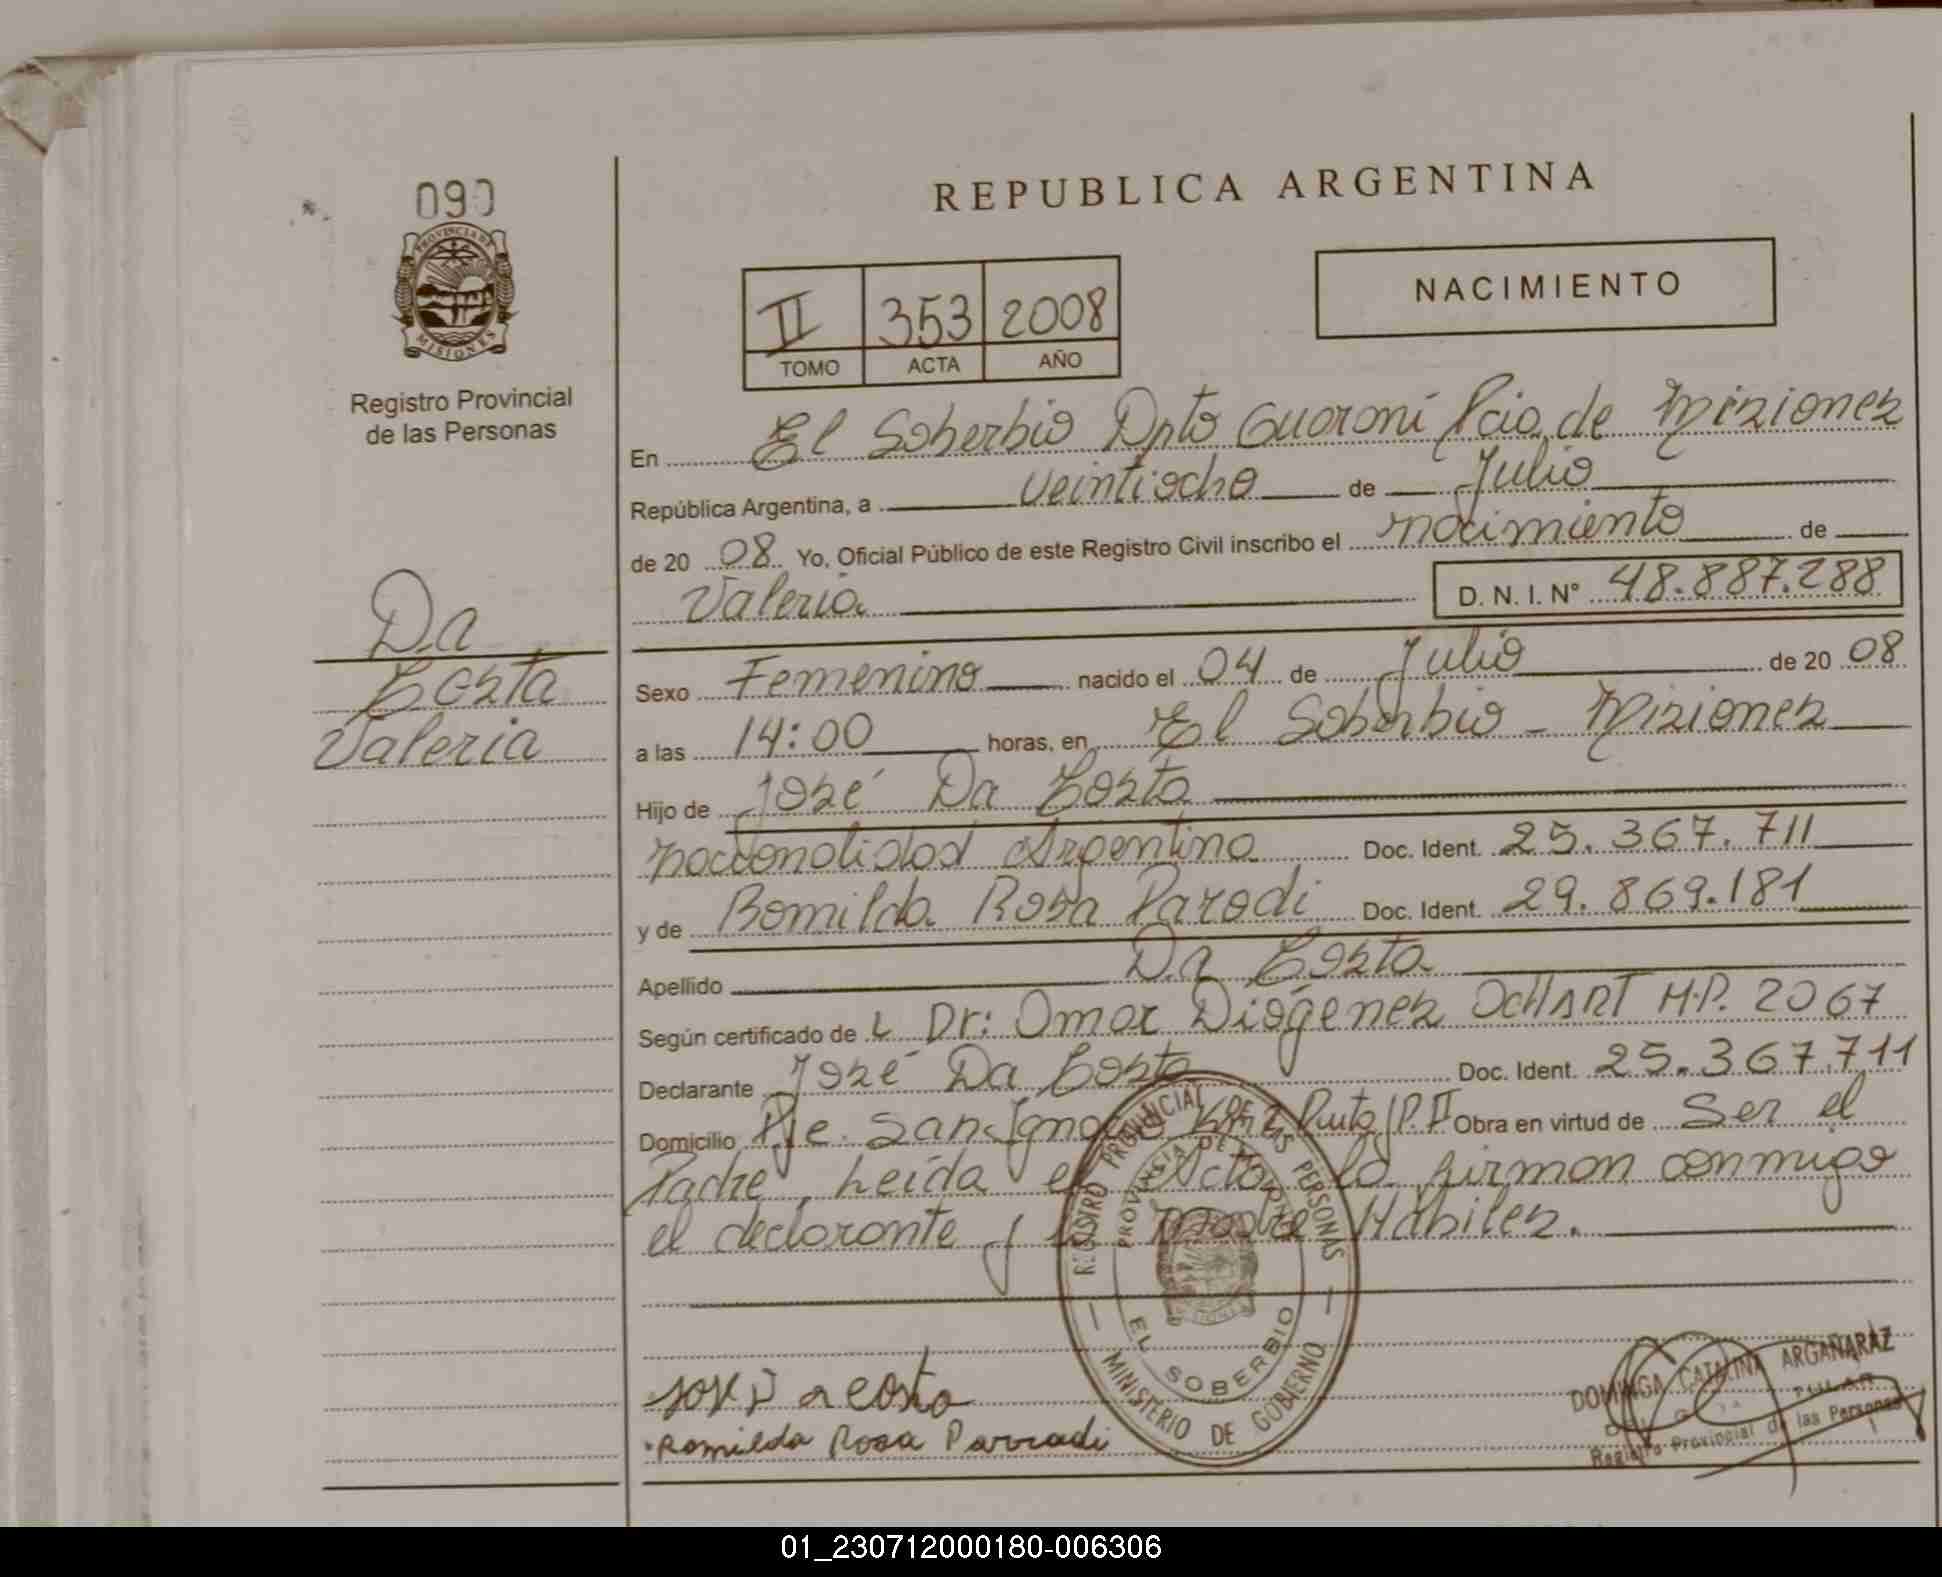 090
PROVINCIA DE
MISIONES
Registro Provincial
de las Personas
Da
Costa
Valeria
REPUBLICA ARGENTINA
NACIMIENTO
II 353 2008
TOMO ACTA AÑO
En El Soberbio Dpto Guaraní Pcia de Misiones
República Argentina, a Veintiocho de Julio
de 20 08 Yo, Oficial Público de este Registro Civil inscribo el nacimiento de
Valeria D. N. I. N° 48.887.288
Sexo Femenino nacido el 04 de Julio de 20 08
a las 14:00 horas, en El Soberbio - Misiones
Hijo de José Da Costa
nacionalidad Argentina Doc. Ident. 25.367.711
y de Romilda Rosa Parodi Doc. Ident. 29.869.181
Apellido Da Costa
Según certificado de L Dr: Omar Diógenes OCHART M.P. 2067
Declarante José Da Costa Doc. Ident. 25.367.711
Domicilio Pje. San Ignacio Km 2 P. II Obra en virtud de Ser el
Padre, Leída el Acta la firman conmigo
el declarante y la madre Habiles.
REGISTRO PROVINCIAL DE LAS PERSONAS
PROVINCIA DE MISIONES
EL SOBERBIO
MINISTERIO DE GOBIERNO
José Da Costa
Romilda Rosa Parrodi
DOMINGA CATALINA ARGAÑARAZ
Registro Provincial de las Personas
01_230712000180-006306